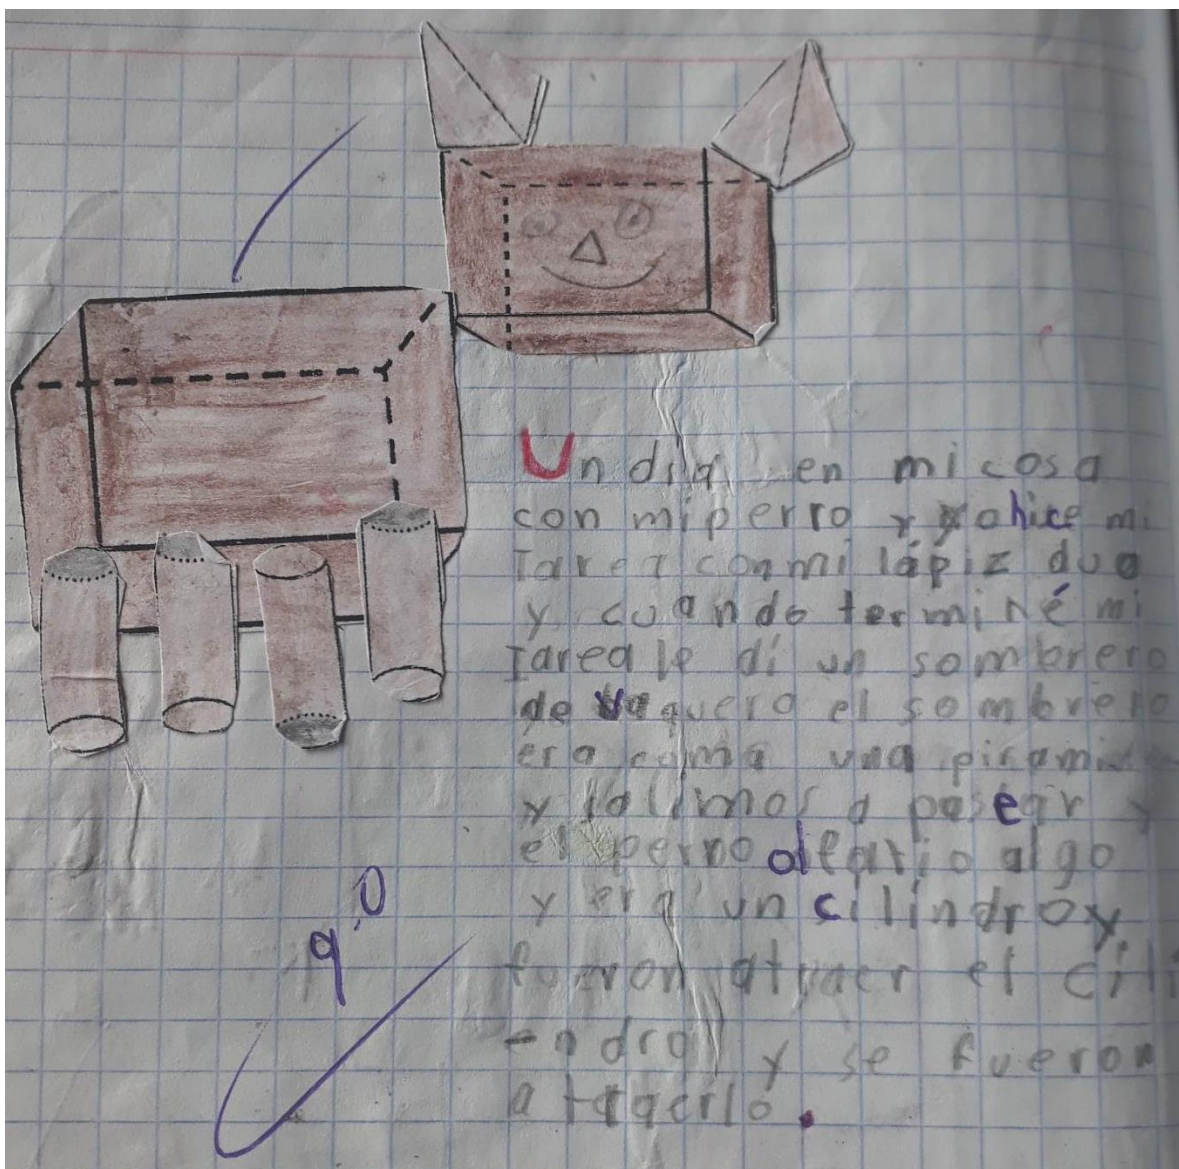 Un dia en mi casa
con mi perro y yo hice mi
Tarea con mi lápiz duo
y cuando terminé mi
Tarea le di un sombrero
de vaquero el sombrero
era como una
y salimos a pasear y
el perro algo
y era un cilindro y
fueron atraer el cili
ndro y se fueron
a traerlo.
9.0